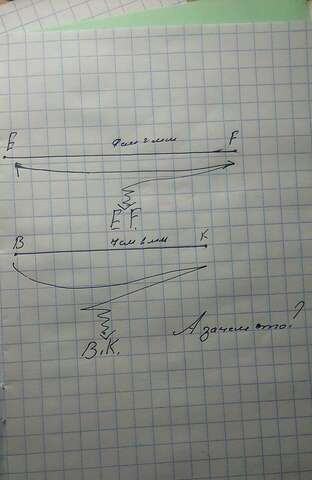 E F
см 2 мм
E F.
B K
см 6 мм
B.K.
А зачем это?